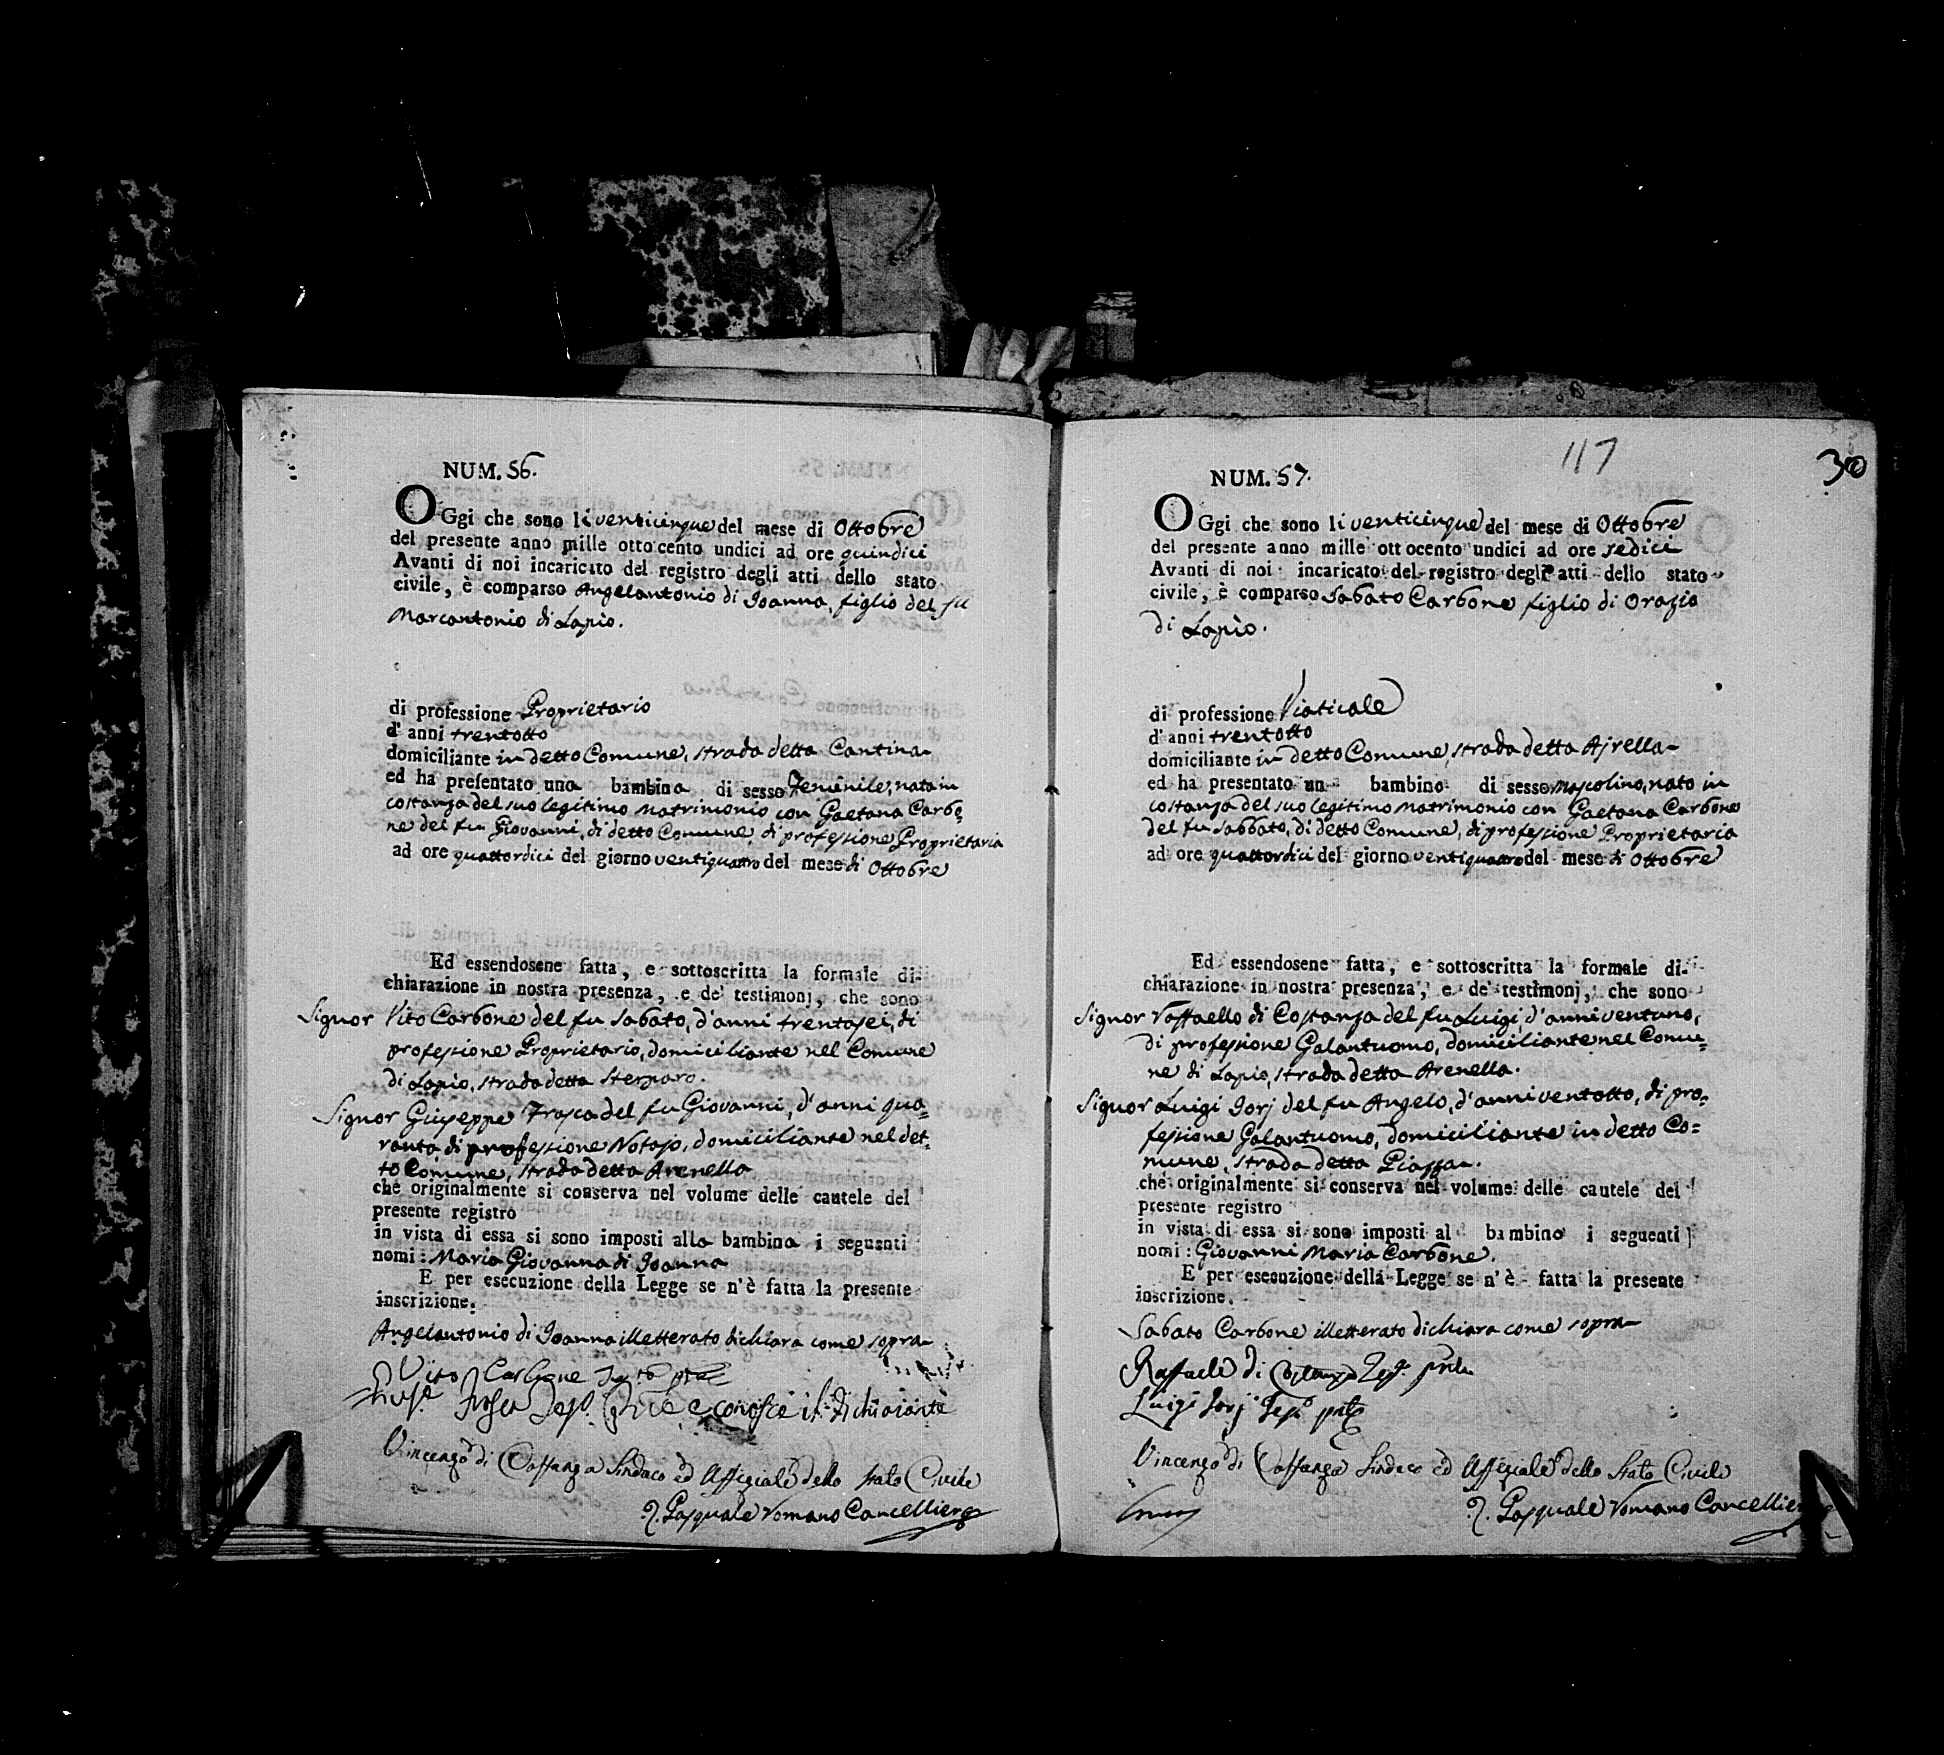 NUM. 56.
OGgi che sono li venticinque del mese di Ottobre
del presente anno mille ottocento undici ad ore quindici
Avanti di noi incaricato del registro degli atti dello stato
civile, è comparso Angelantonio di Joanna, figlio del fu
Marcantonio di Lapio.
di professione Proprietario
d'anni trentotto
domiciliante in detto Comune, strada detta Cantina
ed ha presentato una bambina di sesso Feminile, nata in
costanza del suo legitimo matrimonio con Gaetana Carbo=
ne del fu Giovanni, di detto Comune, di professione Proprietaria
ad ore quattordici del giorno ventiquattro del mese di Ottobre
Ed essendosene fatta, e sottoscritta la formale di-
chiarazione in nostra presenza, e de' testimonj, che sono
Signor Vito Carbone del fu Sabato, d'anni trentasei, di
professione Proprietario, domiciliante nel Comune
di Lapio, strada detta
Signor Giuseppe Frasca del fu Giovanni, d'anni qua=
ranta, di professione Notajo, domiciliante nel det=
to Comune, strada detta Arenella
che originalmente si conserva nel volume delle cautele del
presente registro
in vista di essa si sono imposti alla bambina i seguenti
nomi: Maria Giovanna di Joanna
E per esecuzione della Legge se n'è fatta la presente
inscrizione.
Angelantonio di Joanna illetterato dichiara come sopra
Vito Carbone
conosce il dichiarante
Vincenzo di Costanza Sindaco ed Uffiziale dello Stato Civile
Pasquale Romano Cancelliere
117
30
NUM. 57.
OGgi che sono li venticinque del mese di Ottobre
del presente anno mille ottocento undici ad ore sedici
Avanti di noi incaricato del registro degli atti dello stato
civile, è comparso Sabato Carbone figlio di Orazio
di Lapio.
di professione Viaticale
d'anni trentotto
domiciliante in detto Comune, strada detta Ajrella
ed ha presentato un bambino di sesso mascolino, nato in
costanza del suo legitimo matrimonio con Gaetana Carbone
del fu Sabbato, di detto Comune, di professione Proprietaria
ad ore quattordici del giorno ventiquattro del mese di Ottobre
Ed essendosene fatta, e sottoscritta la formale di-
chiarazione in nostra presenza, e de' testimonj, che sono
Signor Raffaello di Costanza del fu Luigi, d'anni ventuno,
di professione Galantuomo, domiciliante nel Comu=
ne di Lapio, strada detta Arenella.
Signor Luigi Jorj del fu Angelo, d'anni ventotto, di pro=
fessione Galantuomo, domiciliante in detto Co=
mune, strada detta Piazza.
che originalmente si conserva nel volume delle cautele del
presente registro
in vista di essa si sono imposti al bambino i seguenti
nomi: Giovanni Maria Carbone.
E per esecuzione della Legge se n'è fatta la presente
inscrizione.
Sabato Carbone illetterato dichiara come sopra
Raffaele di Costanza
Luigi Jorj
Vincenzo di Costanza Sindaco ed Uffiziale dello Stato Civile
Pasquale Romano Cancelliere